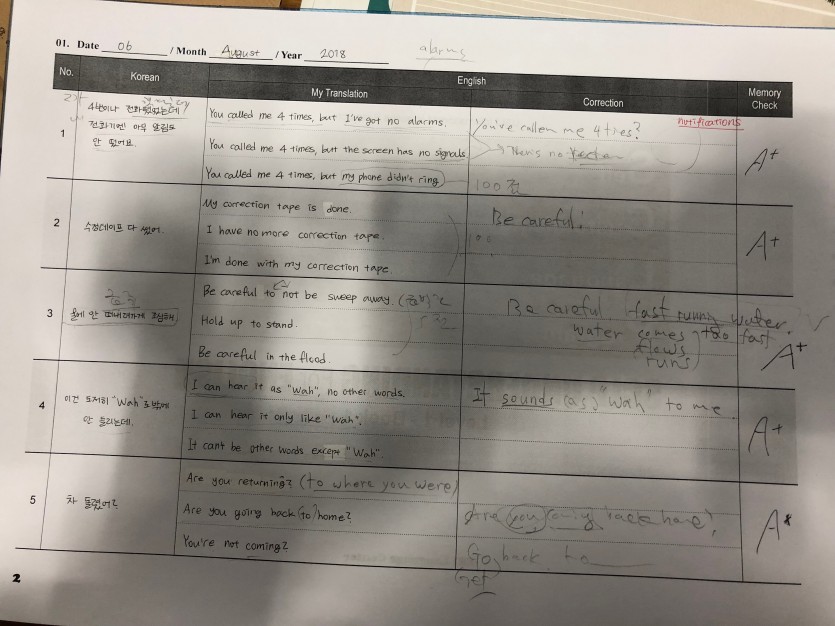 alarms
01. Date 06 / Month August / Year 2018
No. Korean English Memory Check
My Translation Correction
notifications
1
4번이나 전화했었는데
전화기엔 아무 알림도
안 떴어요.
You called me 4 times, but I've got no alarms.
You called me 4 times, but the screen has no signals
You called me 4 times, but my phone didn't ring.
You've callen me 4 times?
There's no
100점
A+
2
수정테이프 다 썼어.
My correction tape is done.
I have no more correction tape.
I'm done with my correction tape.
Be careful!
A+
3
물에 안 떠내려가게 조심해.
Be careful to not be sweep away.
Hold up to stand.
Be careful in the flood.
Be careful fast runny water.
water comes too fast
flows
runs
A+
4
이건 도저히 "Wah"로 밖에
안 들리는데.
I can hear it as "Wah", no other words.
I can hear it only like "Wah".
It can't be other words except "Wah".
It sounds (as) "Wah" to me.
A+
5
차 돌렸어?
Are you returning? (to where you were)
Are you going back (to) home?
You're not coming?
Are you coming back
Go back to
Get
A+
2